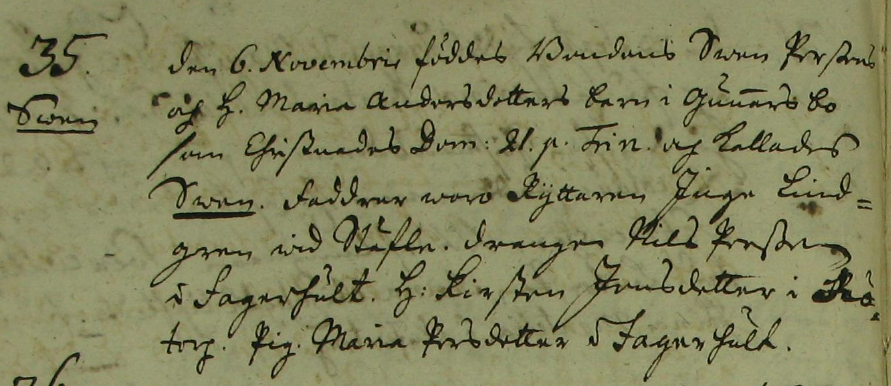 35. den 6. Novembris föddes Bondens Swen Perssons
Swen och H. Maria Andersdotters barn i Gunnersbo
som Christnades Dom: 21. p. Trin. och kallades
Swen. Faddrar woro Ryttaren Inge Lind=
gren wid Skäfle. drengen Nils Persson
i Fagerhult. H: Kirsten Jonsdotter i
torp. Pig. Maria Persdotter i Fagerhult.